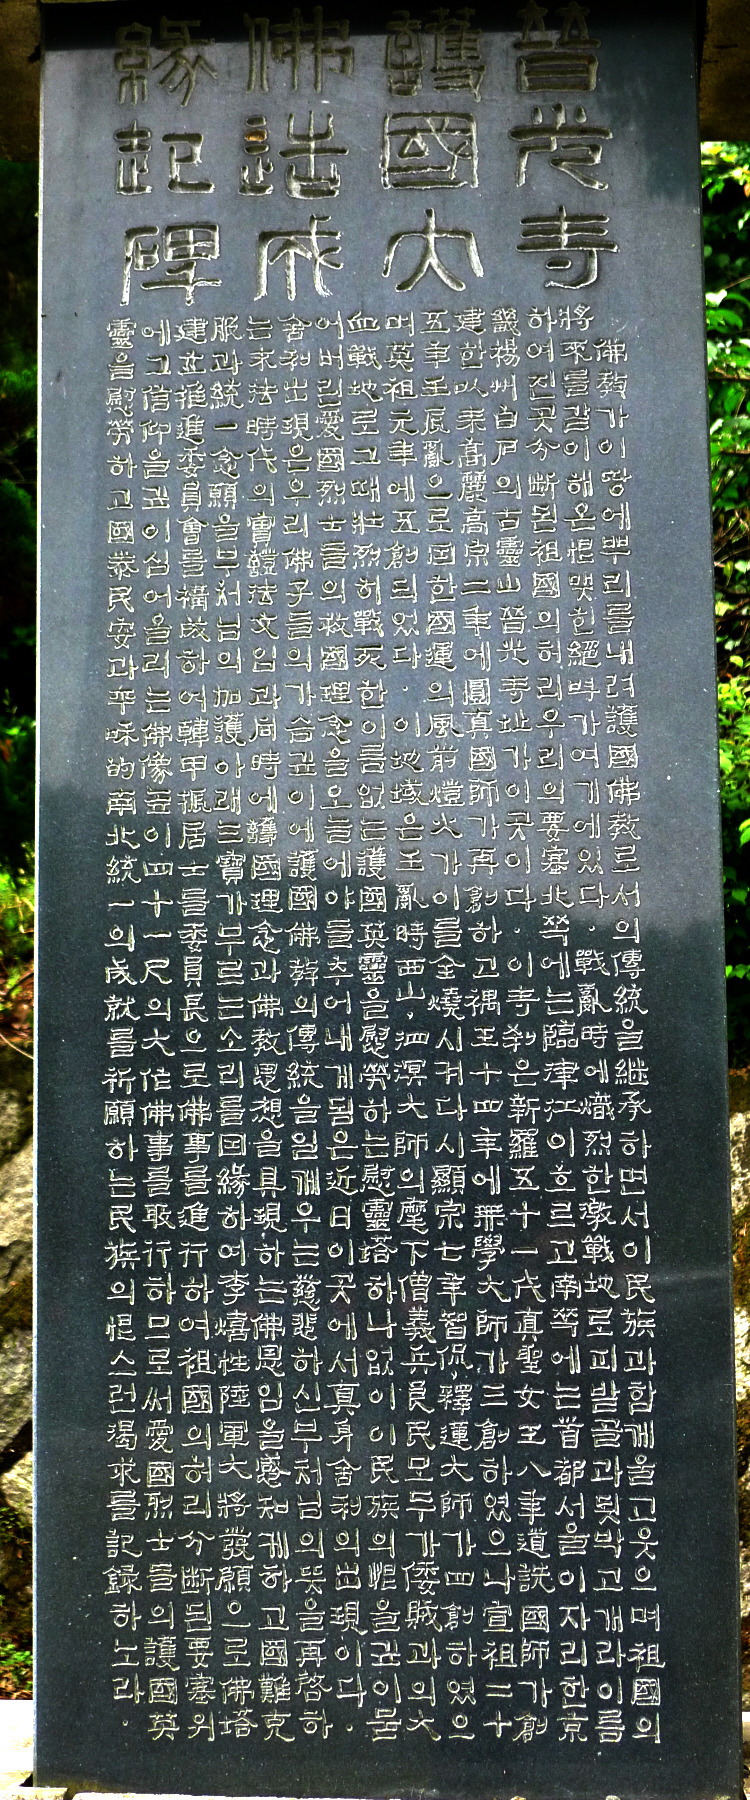 普光寺
護國大
佛造成
緣起碑
佛敎가이땅에뿌리를내려護國佛敎로서의傳統을継承하면서이民族과함께울고웃으며祖國의
將來를같이해온恨맺힌絕벽가여기에있다. 戰亂時에熾烈한激戰地로피밭골과됫박고개라이름
하여진곳分斷된祖國의허리우리의要塞北쪽에는臨津江이흐르고南쪽에는首都서울이자리한京
畿楊州白戶의古靈山普光寺址가이곳이다. 이寺刹은新羅五十一代真聖女王八年道詵國師가創
建한以來高麗高宗二年에圓真國師가再創하고禑王十四年에無學大師가三創하였으나宣祖二十
五年壬辰亂으로因한國運의風前燈火가이를全燒시켜다시顯宗七年智侃,釋蓮大師가四創하였으
며英祖元年에五創되었다. 이地域은壬亂時西山,泗溟大師의麾下僧義兵良民모두가倭賊과의大
血戰地로그때壯烈히戰死한이름없는護國英靈을慰勞하는慰靈塔하나없이이民族의恨을깊이묻
어버린愛國烈士들의救國理念을오늘에야들추어내게됨은近日이곳에서真身舍利의出現이다.
舍利出現은우리佛子들의가슴깊이에護國佛敎의傳統을일깨우는慈悲하신부처님의뜻을再啓하
는末法時代의實證法文임과同時에護國理念과佛敎思想을具現하는佛恩임을感知케하고國難克
服과統一念願을부처님의加護아래三寶가부르는소리를因緣하여李熺性陸軍大將發願으로佛塔
建立推進委員會를構成하여韓甲振居士를委員長으로佛事를進行하여祖國의허리分斷된要塞위
에그信仰을깊이심어올리는佛像높이四十一尺의大作佛事를敢行하므로써愛國烈士들의護國英
靈을慰勞하고國泰民安과平和的南北統一의成就를祈願하는民族의恨스런渴求를記錄하노라.